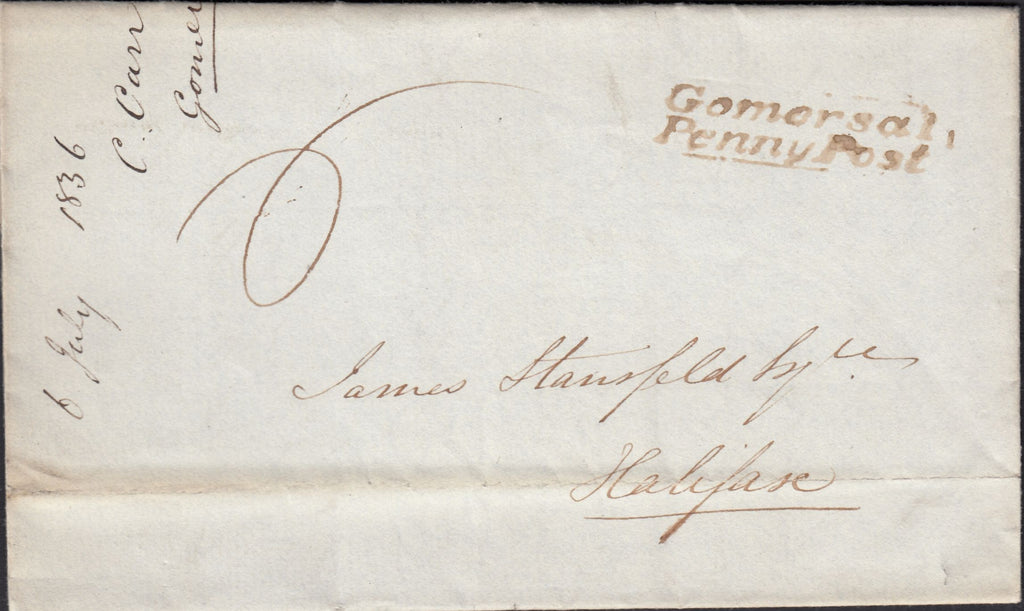 6 July 1836
C. Carr
Gomer
6
Gomersal,
Penny Post
James Stansfeld Esqre.
Halifax